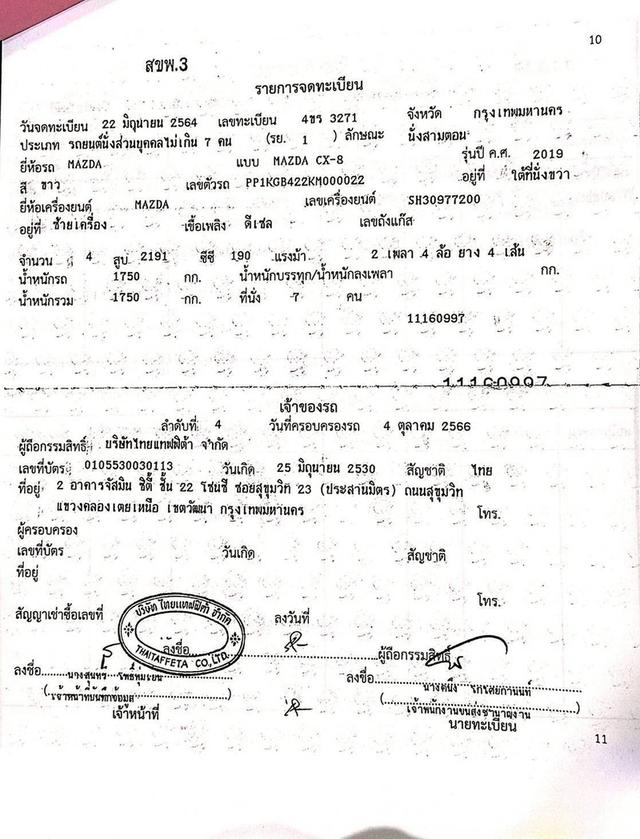 10
สขพ.3
รายการจดทะเบียน
วันจดทะเบียน 22 มิถุนายน 2564 เลขทะเบียน 4ขร 3271 จังหวัด กรุงเทพมหานคร
ประเภท รถยนต์นั่งส่วนบุคคลไม่เกิน 7 คน (รย. 1 ) ลักษณะ นั่งสามตอน
ยี่ห้อรถ MAZDA แบบ MAZDA CX-8 รุ่นปี ค.ศ. 2019
สี ขาว เลขตัวรถ PP1KGB422KM000022 อยู่ที่ ใต้ที่นั่งขวา
ยี่ห้อเครื่องยนต์ MAZDA เลขเครื่องยนต์ SH30977200
อยู่ที่ ซ้ายเครื่อง เชื้อเพลิง ดีเซล เลขถังแก๊ส
จำนวน 4 สูบ 2191 ซีซี 190 แรงม้า 2 เพลา 4 ล้อ ยาง 4 เส้น
น้ำหนักรถ 1750 กก. น้ำหนักบรรทุก/น้ำหนักลงเพลา กก.
น้ำหนักรวม 1750 กก. ที่นั่ง 7 คน
11160997
11160997
เจ้าของรถ
ลำดับที่ 4 วันที่ครอบครองรถ 4 ตุลาคม 2566
ผู้ถือกรรมสิทธิ์ บริษัทไทยแทฟฟิต้า จำกัด
เลขที่บัตร 0105530030113 วันเกิด 25 มิถุนายน 2530 สัญชาติ ไทย
ที่อยู่ 2 อาคารจัสมิน ซิตี้ ชั้น 22 โซนซี ซอยสุขุมวิท 23 (ประสานมิตร) ถนนสุขุมวิท
แขวงคลองเตยเหนือ เขตวัฒนา กรุงเทพมหานคร โทร.
ผู้ครอบครอง
เลขที่บัตร วันเกิด สัญชาติ
ที่อยู่
โทร.
สัญญาเช่าซื้อเลขที่ ลงวันที่
บริษัท ไทยแทฟฟิต้า จำกัด
THAITAFFETA CO.,LTD.
ลงชื่อ ผู้ถือกรรมสิทธิ์
ลงชื่อ ลงชื่อ
(เจ้าหน้าที่บันทึกข้อมูล) (เจ้าพนักงานขนส่งชำนาญงาน)
เจ้าหน้าที่ นายทะเบียน
11